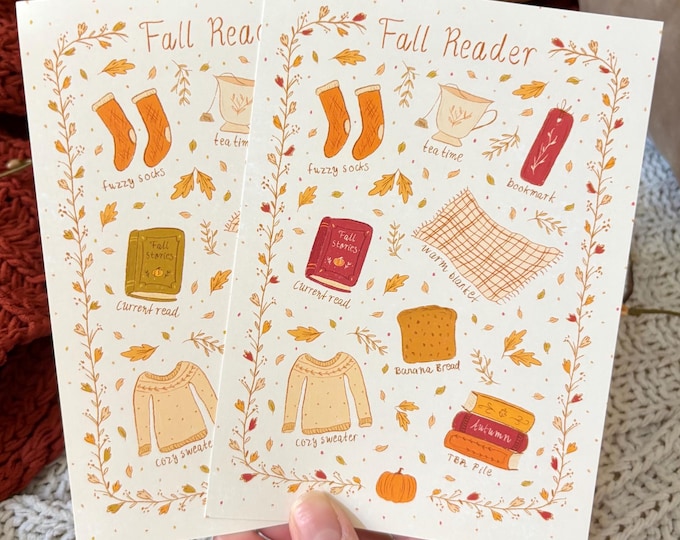 Fall Reader
fuzzy socks
tea time
bookmark
Fall
Stories
Current read
warm blanket
Banana Bread
Cozy sweater
Autumn
TBR Pile
Fall Read
fuzzy socks
tea time
Fall
Stories
Current read
Cozy sweater